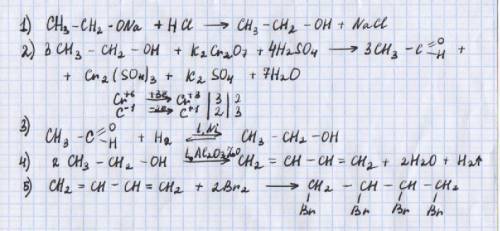 1) CH₃-CH₂-ONa + HCl → CH₃-CH₂-OH + NaCl
2) 3CH₃-CH₂-OH + K₂Cr₂O₇ + 4H₂SO₄ → 3CH₃-C=O H +
+ Cr₂(SO₄)₃ + K₂SO₄ + 7H₂O
Cr⁺⁶ +3e → Cr⁺³ | 3 | 2
C⁻¹ -2e → C⁺¹ | 2 | 3
3) CH₃-C=O H + H₂ t, Ni ⇄ CH₃-CH₂-OH
4) 2CH₃-CH₂-OH t, Al₂O₃, ZnO → CH₂=CH-CH=CH₂ + 2H₂O + H₂↑
5) CH₂=CH-CH=CH₂ + 2Br₂ → CH₂-CH-CH-CH₂
Br Br Br Br